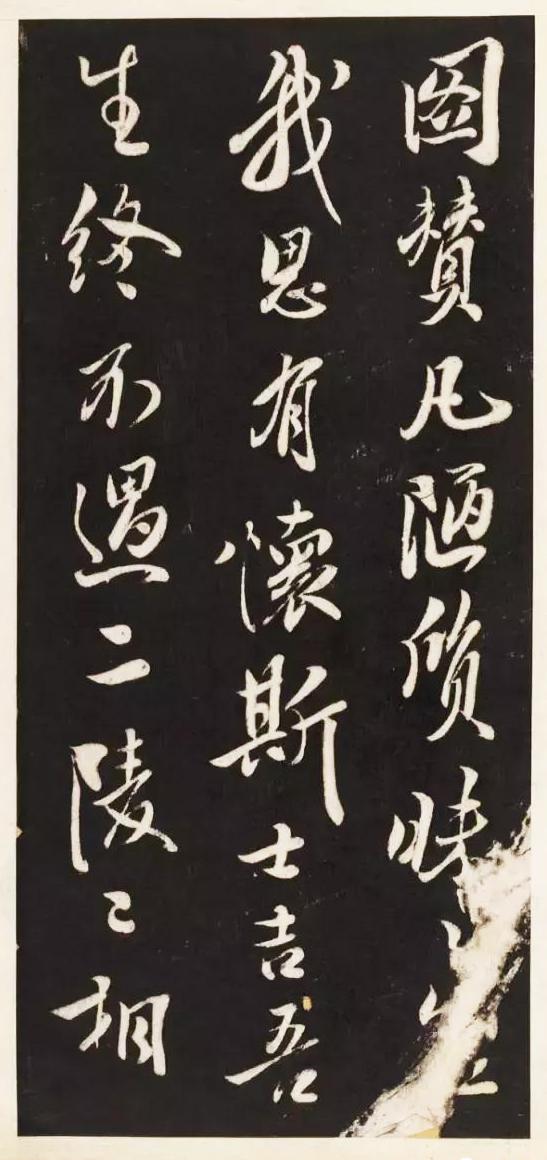 圖贊凡陋質昧
我思有懷斯士吉吾
生終不遇二陵二相